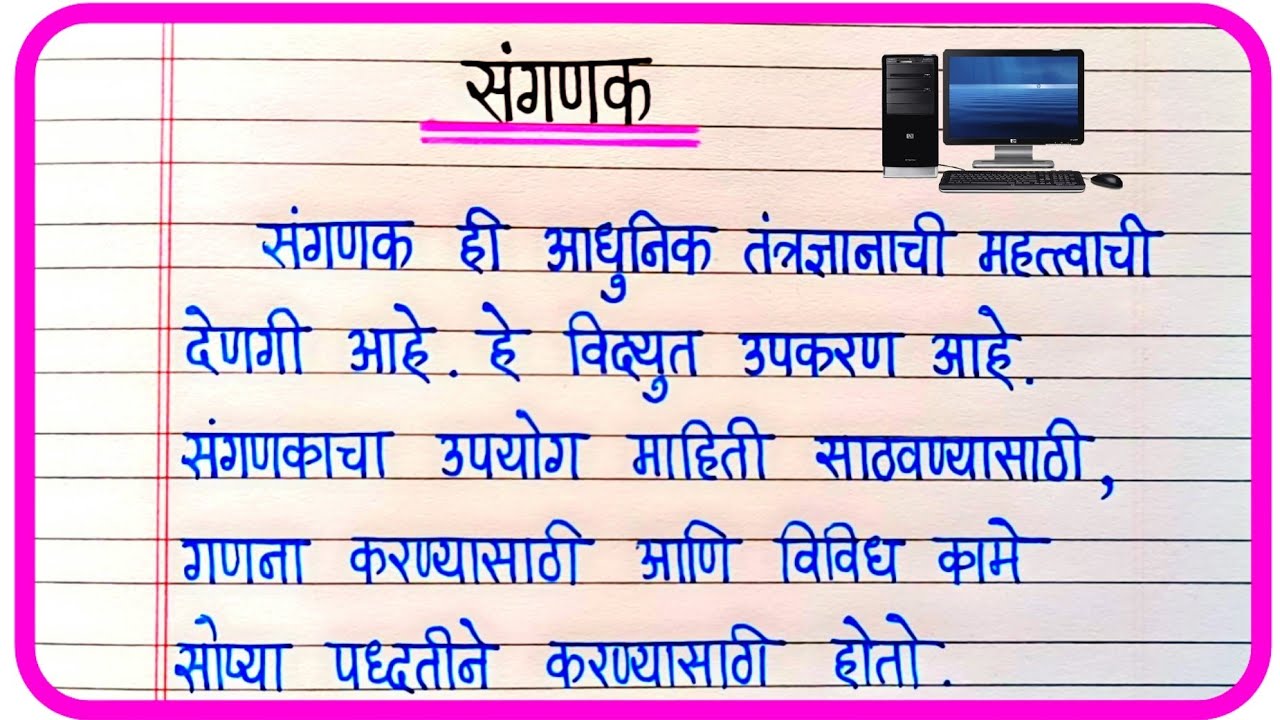 संगणक
संगणक ही आधुनिक तंत्रज्ञानाची महत्त्वाची
देणगी आहे. हे विद्युत उपकरण आहे.
संगणकाचा उपयोग माहिती साठवण्यासाठी,
गणना करण्यासाठी आणि विविध कामे
सोप्या पध्दतीने करण्यासाठी होतो.